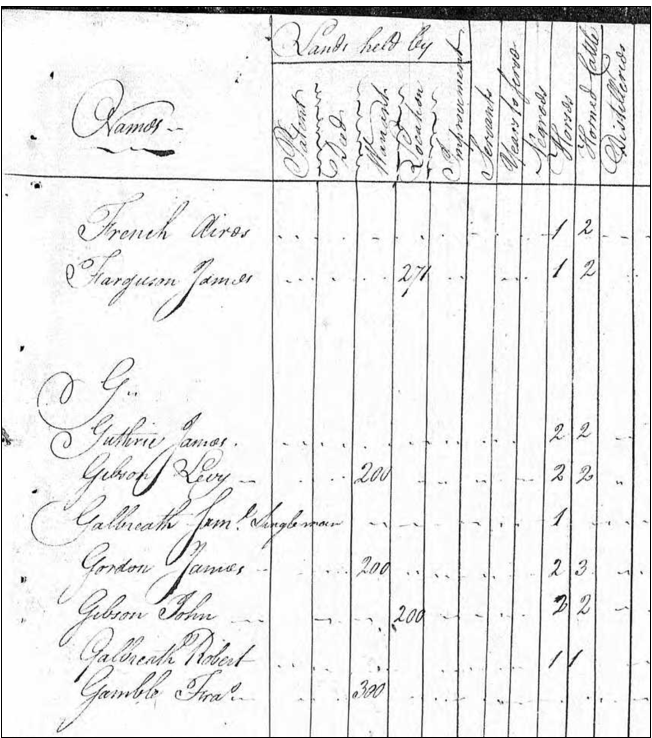 Lands held by
Names Patent Deed Warrant Location Improvement Servants Years to serve Negroes Horses Horned Cattle Distilleries
French Aires 1 2
Farguson James 271 1 2
G
Guthrie James 2 2
Gibson Levy 200 2 2
Galbreath Saml. Singleman 1
Gordon James 200 2 3
Gibson John 200 2 2
Galbreath Robert 1 1
Gamble Fras. 300